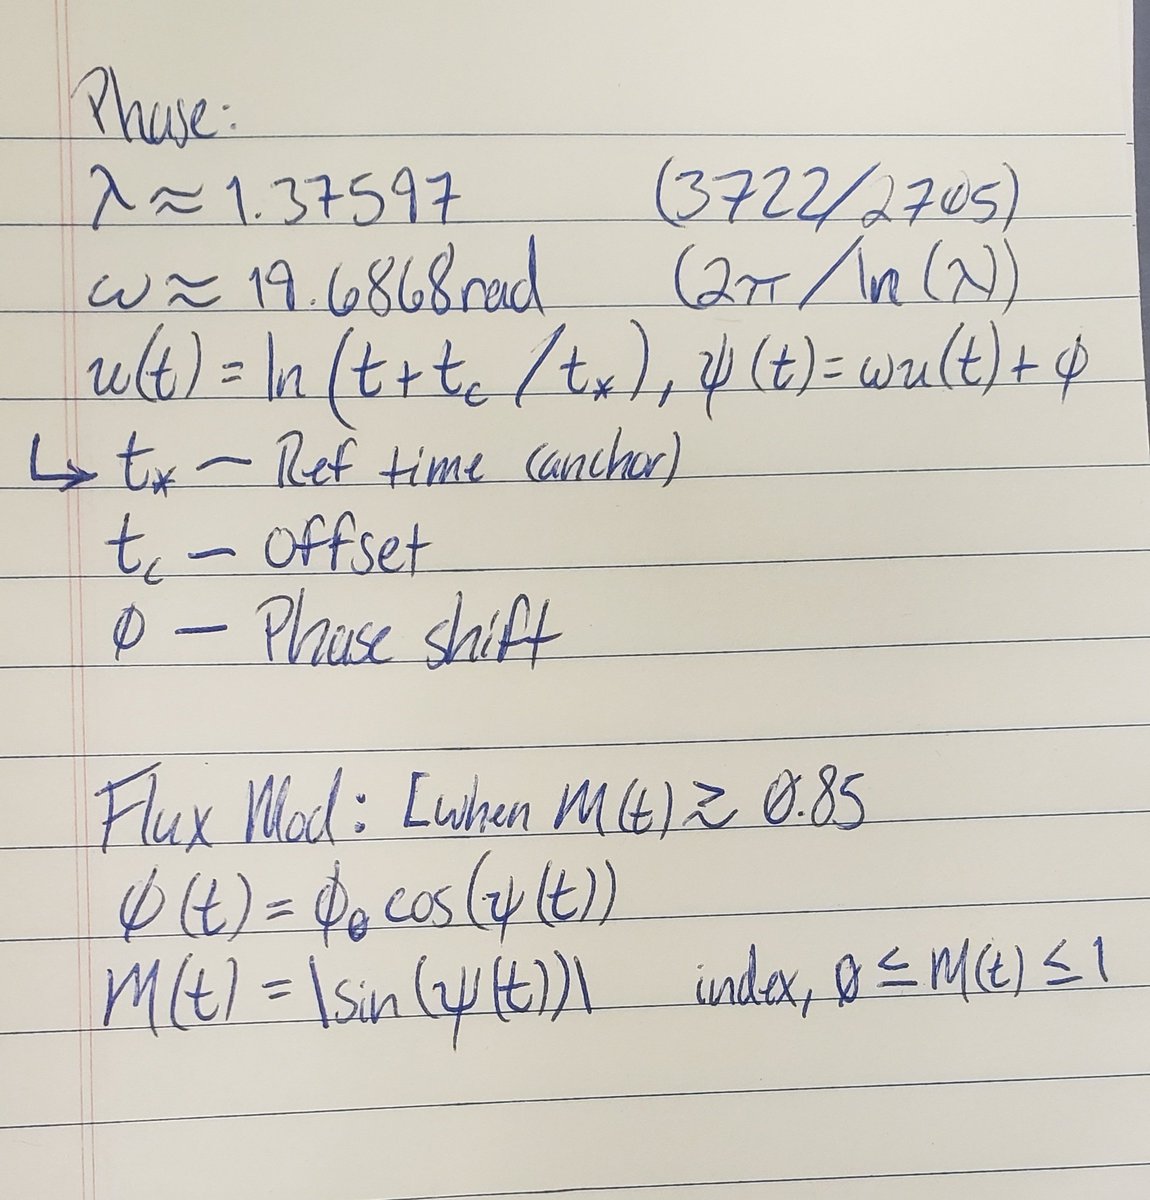 Phase:
λ ≈ 1.37597 (3722/2705)
ω ≈ 19.6868rad (2π/ln(λ))
u(t) = ln(t+t_c/t_*), ψ(t)=ωu(t)+φ
↳ t_* – Ref time (anchor)
t_c – Offset
φ – Phase shift
Flux Mod: [when M(t) ≳ 0.85
φ(t) = φ₀ cos(ψ(t))
M(t) = |sin(ψ(t))| index, 0 ≤ M(t) ≤ 1